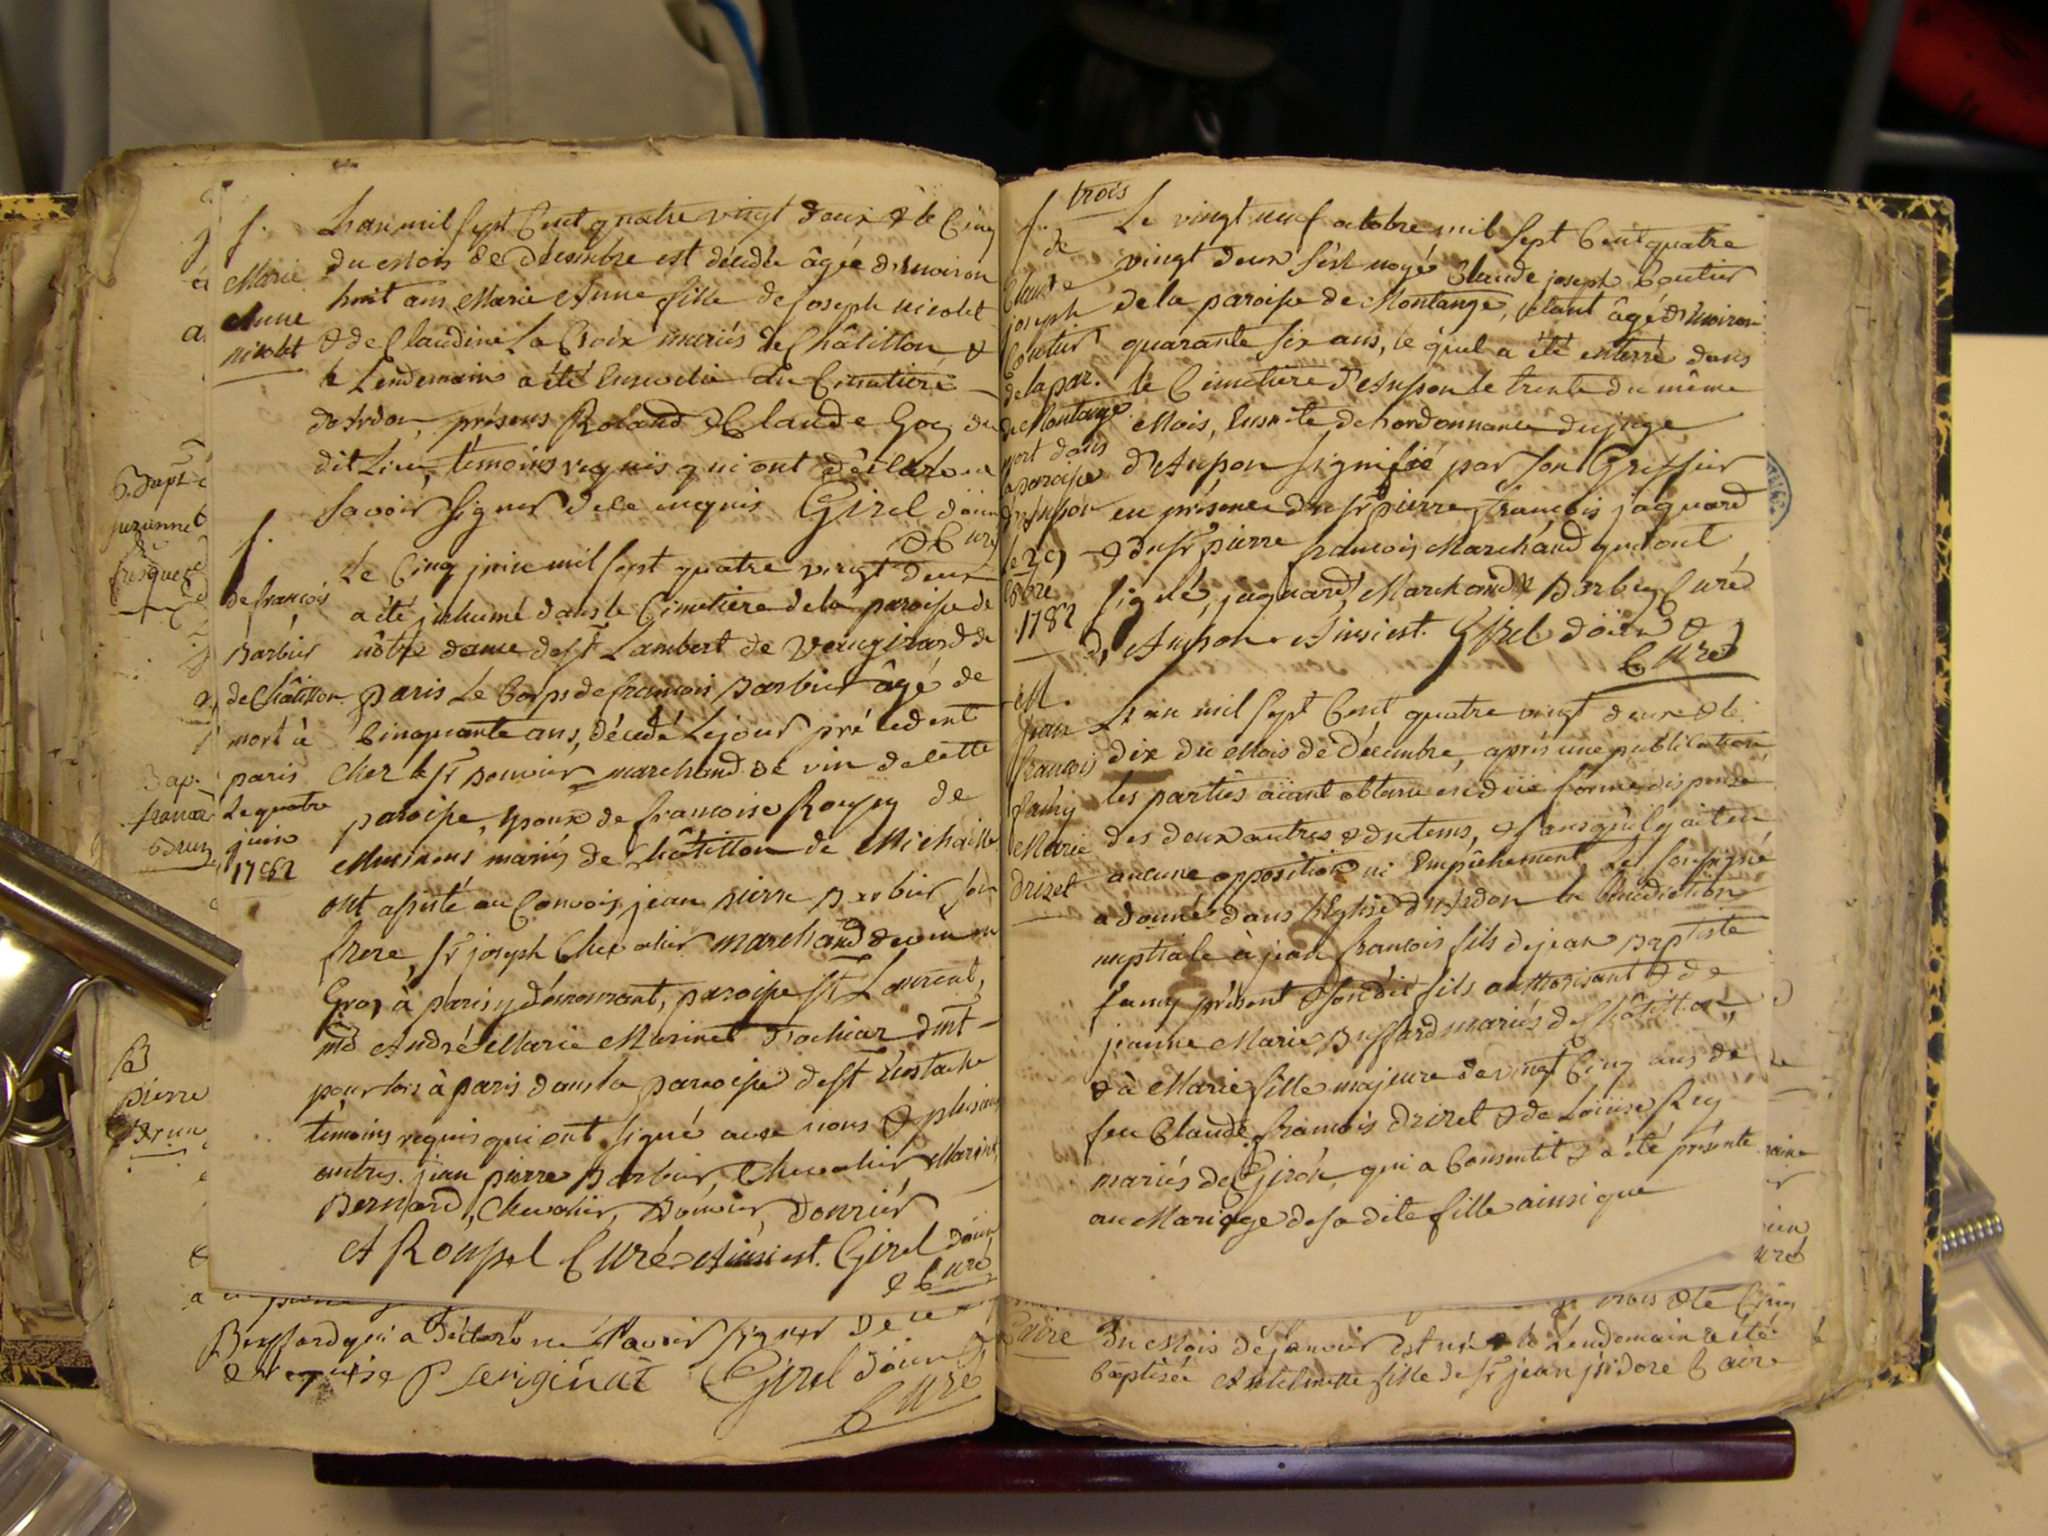 f.
Marie
Anne
nicolet
L'an mil sept Cent quatre vingt deux & le Cinq
du mois de Décembre est decédée âgée d'environ
huit ans Marie Anne fille de joseph nicolet
& de Claudine La Croix mariés de Châtillon &
le Lendemain a été Ensevelie au Cimetiere
d'Ardon, présens Roland & Claude Goy du
dit Lieu, temoins requis qui ont déclaré ne
savoir signer de ce enquis Girel doïen
& Curé
f.
de françois
Barbier
de Châtillon
mort à
paris
Le quatre
juin
1782
Le Cinq juin mil sept quatre vingt deux
a été inhumé dans le Cimetiere de la paroisse de
nôtre dame de st Lambert de Veaugirard de
paris Le Corps de francois Barbier âgé de
Cinquante ans, décédé Le jour précédent
Chez le sr Bouvier marchand de vin de cette
paroisse, Epoux de francoise
mariés de Châtillon de Michaille
ont assisté au Convoi, jean pierre Barbier son
frere, sr joseph Chevalier marchand de vin en
Gros à paris y démeurant, paroisse st Laurent,
md André Marie Marinet d'ochiaz dmt
pour lors à paris dans la paroisse de st Eustache
témoins requis qui ont signé avec nous & plusieurs
autres. jean pierre Barbier, Chevalier, Marinet,
Bernard, Chevalier, Bouvier,
A Roussel Curé. Ainsi est. Girel doïen
& Curé
Buffard qui a déclaré ne savoir signer de ce
enquise P Serviginat Girel doïen &
Curé
Bapt
Bap.
B
pierre
Brun
trois
f.
de
Claude
joseph
Coutier
de la par.
de Montange
mort dans
la paroisse
d'Anson
le 29
8bre
1782
Le vingt neuf octobre mil sept Cent quatre
vingt deux s'est noyé Claude joseph Coutier
de la paroisse de Montange, étant âgé d'environ
quarante six ans, le quel a été enterré dans
le Cimetiere d'Anson le trente du même
Mois, Ensuite de L'ordonnance du juge
d'Anson signifié par son Greffier
en présence du sr pierre françois jaquard
& du sr pierre francois Marchand qui ont
signé, jaquard, Marchand & Barbier Curé
d'Anson. Ainsi est. Girel doïen &
Curé
M.
jean
francois
famy
Marie
drizet
L'an mil sept Cent quatre vingt deux & le
dix du Mois de Décembre, aprés une publication
les parties aïant obtenu en duë forme dispense
des deux autres & du tems, & sans qu'il y ait eu
aucune opposition ni Empêchement, Le soussigné
a donné dans l'Eglise d'Ardon la benediction
nuptiale à jean francois fils de jean Baptiste
famy présent & son dit fils authorisant & de
jeanne Marie Buffard mariés de Châtillon,
& à Marie fille majeure de vingt Cinq ans de
feu Claude francois drizet & de Loüise Rey
mariés de Giron, qui a Consentit & a été présente
au Mariage de sa dite fille ainsi que
trois & le Cinq
Caire
Du Mois de janvier est née & le Lendemain a été
baptisée Anthelmette fille de sr jean jsidore Caire